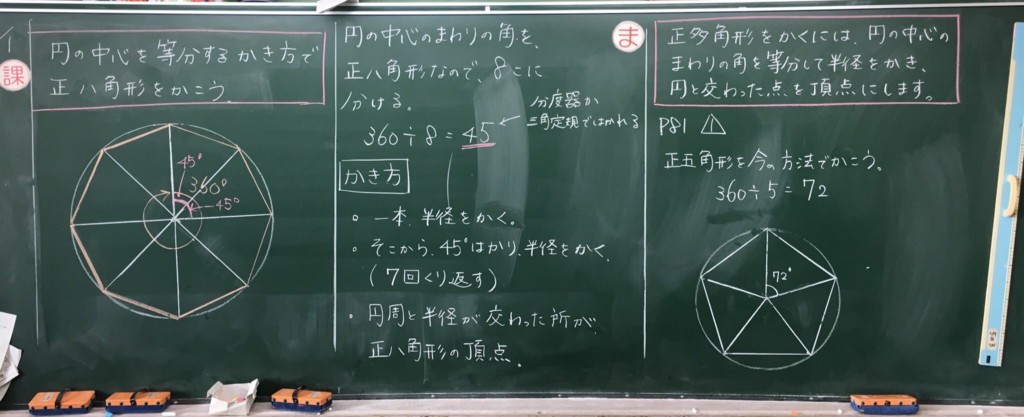 イ
課
円の中心を等分するかき方で
正八角形をかこう。
45°
360°
45°
円の中心のまわりの角を、
正八角形なので、8こに
分ける。
360÷8=45
分度器か
三角定規ではかれる
かき方
。一本、半径をかく。
。そこから、45°はかり、半径をかく。
(7回くり返す)
・円周と半径が交わった所が、
正八角形の頂点。
ま
正多角形をかくには、円の中心の
まわりの角を等分して半径をかき、
円と交わった点を頂点にします。
P81 △1
正五角形を今の方法でかこう。
360÷5=72
72°